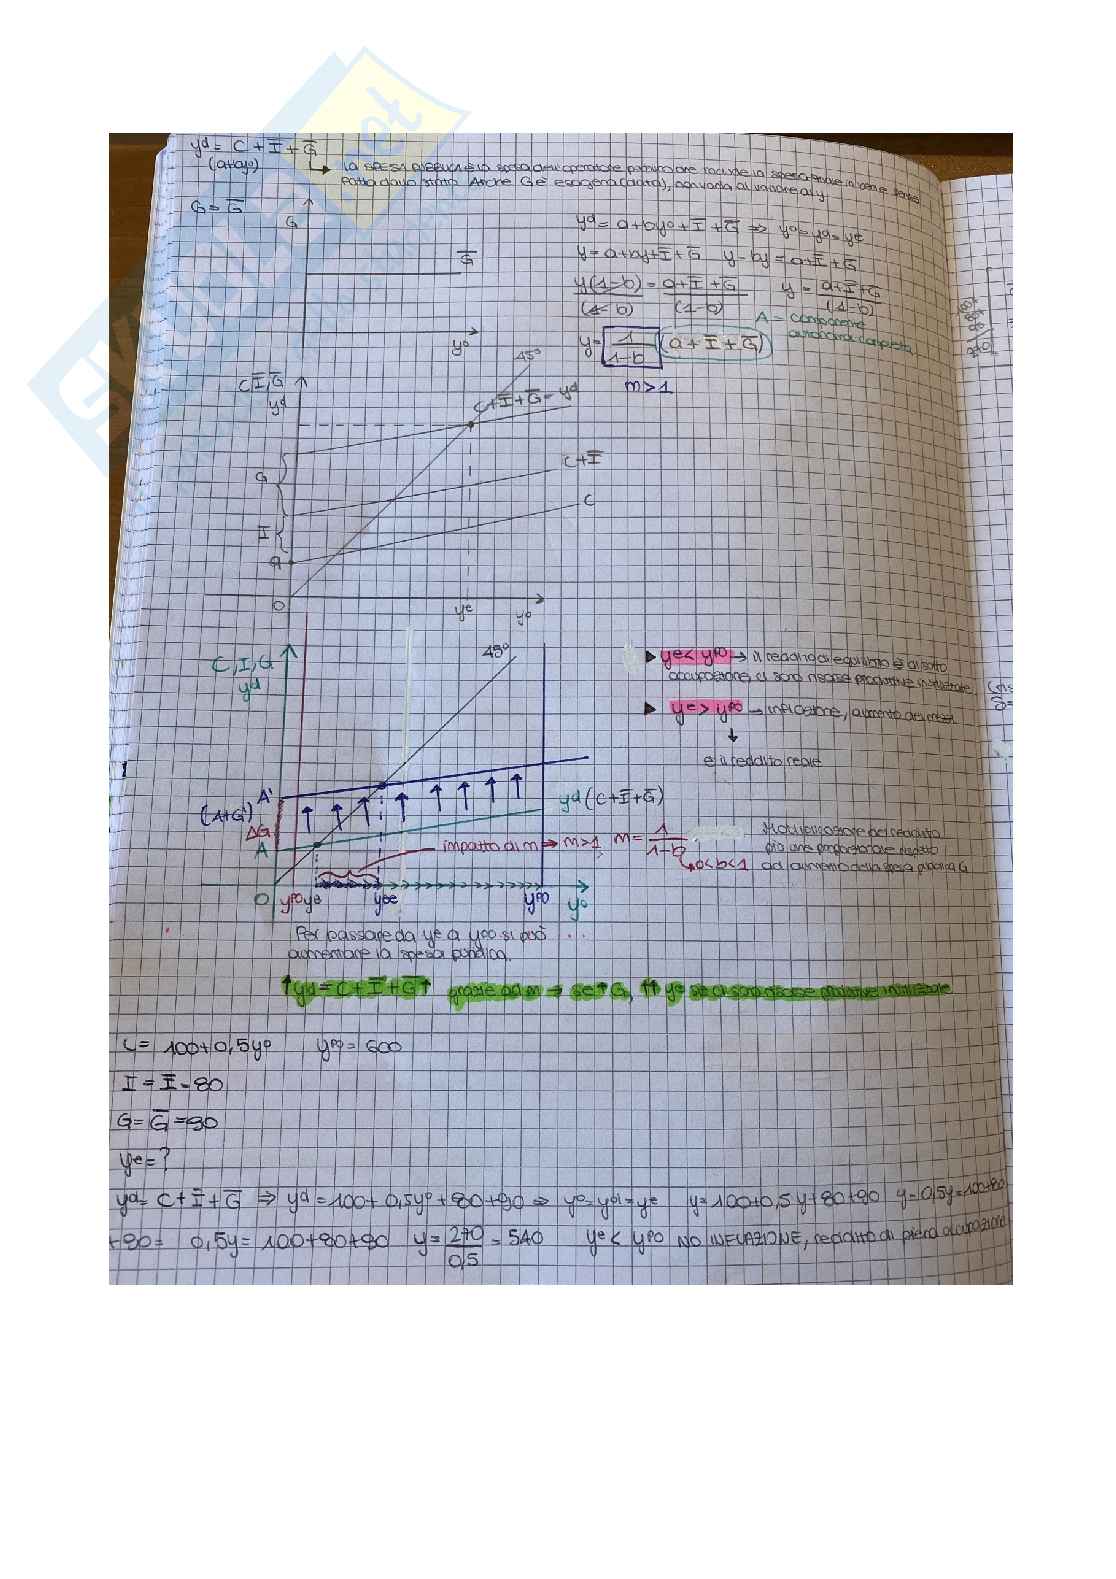 yᵈ = C + Ī + Ḡ
(a+byᵒ)
la spesa pubblica è la spesa dell'operatore
fatta dallo stato. Anche G è esogena (data), al variare di y
G = Ḡ
G
Ḡ
yᵒ
yᵈ = a + byᵒ + Ī + Ḡ ⇒ yᵒ=yᵈ=yᵉ
y = a+by+Ī+Ḡ y-by = a+Ī+Ḡ
y(1-b) = a+Ī+Ḡ y = a+Ī+Ḡ
(1-b) (1-b) (1-b)
A = componente
autonoma completa
y = 1/1-b (a + Ī + Ḡ)
m > 1
45°
C Ī, Ḡ
yᵈ
C+Ī+Ḡ = yᵈ
C+Ī
G
C
Ī
a
O
yᵉ yᵒ
45°
C, I, G
yᵈ
▶ yᵉ < yᴾᴼ → il reddito di equilibrio è di sotto
occupazione, ci sono risorse produttive inutilizzate
▶ yᵉ > yᴾᴼ → inflazione, aumento dei
↓
è il reddito reale
A'
(A+G')
ΔG
A
yᵈ (C+Ī+Ḡ)
impatto di m → m>1 m = 1/1-b
0<b<1
Moltiplicatore del reddito
più che proporzionale rispetto
ad aumento della spesa pubblica G
O yᴾᴼ yᵉ yᵉᵉ yᴾᴼ yᵒ
Per passare da yᵉ a yᴾᴼ si può ...
aumentare la spesa pubblica.
↑yᵈ = C + Ī + Ḡ↑ grazie ad m → se ↑G, ↑↑ yᵉ se ci sono risorse produttive inutilizzate
C = 100+0,5yᵒ yᴾᴼ = 600
I = Ī = 80
G = Ḡ = 90
yᵉ = ?
yᵈ = C + Ī + Ḡ ⇒ yᵈ = 100 + 0,5yᵒ + 80 + 90 ⇒ yᵒ=yᵈ=yᵉ y = 100+0,5y+80+90 y-0,5y = 100+80
+90= 0,5y = 100+80+90 y = 270/0,5 = 540 yᵉ < yᴾᴼ NO INFLAZIONE, reddito di piena occupazione